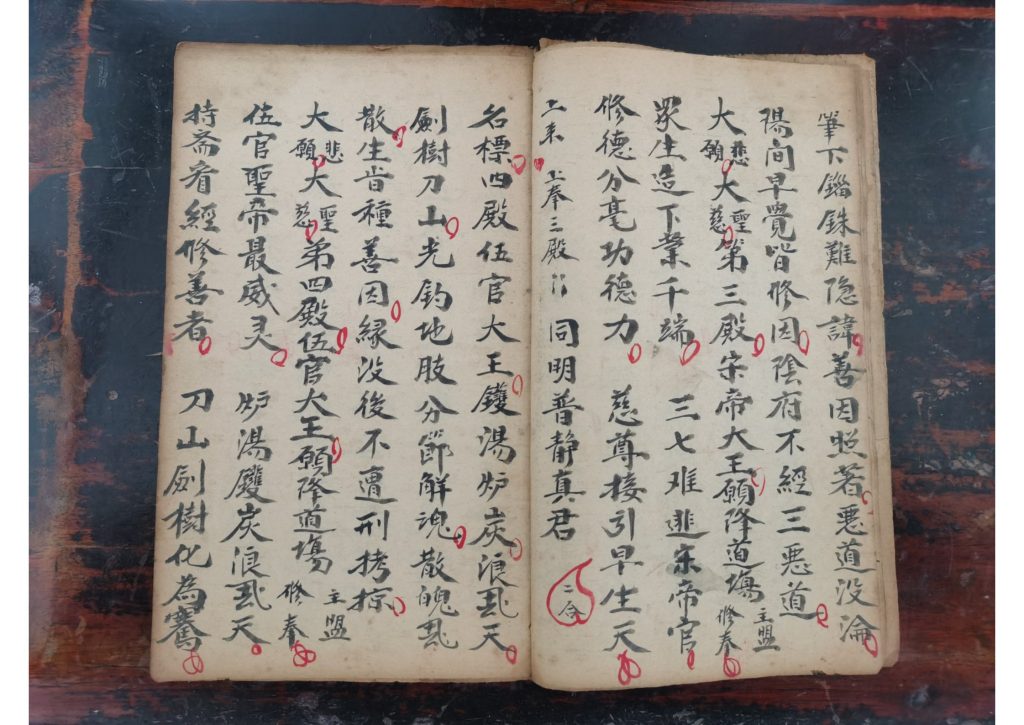 筆下錙銖難隐諱善因照著悪道没淪
陽間早覺皆修因陰府不經三悪道
大悲願大聖慈第三殿宋帝大王願降道塲主盟修奉
眾生造下業千端 三七难逃宋帝官
修德分毫功德力 慈尊接引早生天
上奉三殿 同明普静真君 二合
名標四殿伍官大王鑊湯炉炭浪飛天
劍樹刀山光鈞地肢分節解魂散魄飛
散生肯種善因縁没後不遭刑拷掠
大悲願大聖慈第四殿伍官大王願降道塲主盟修奉
伍官聖帝最威灵 炉湯鑊炭浪飛天
持斋看經修善者 刀山劍樹化為